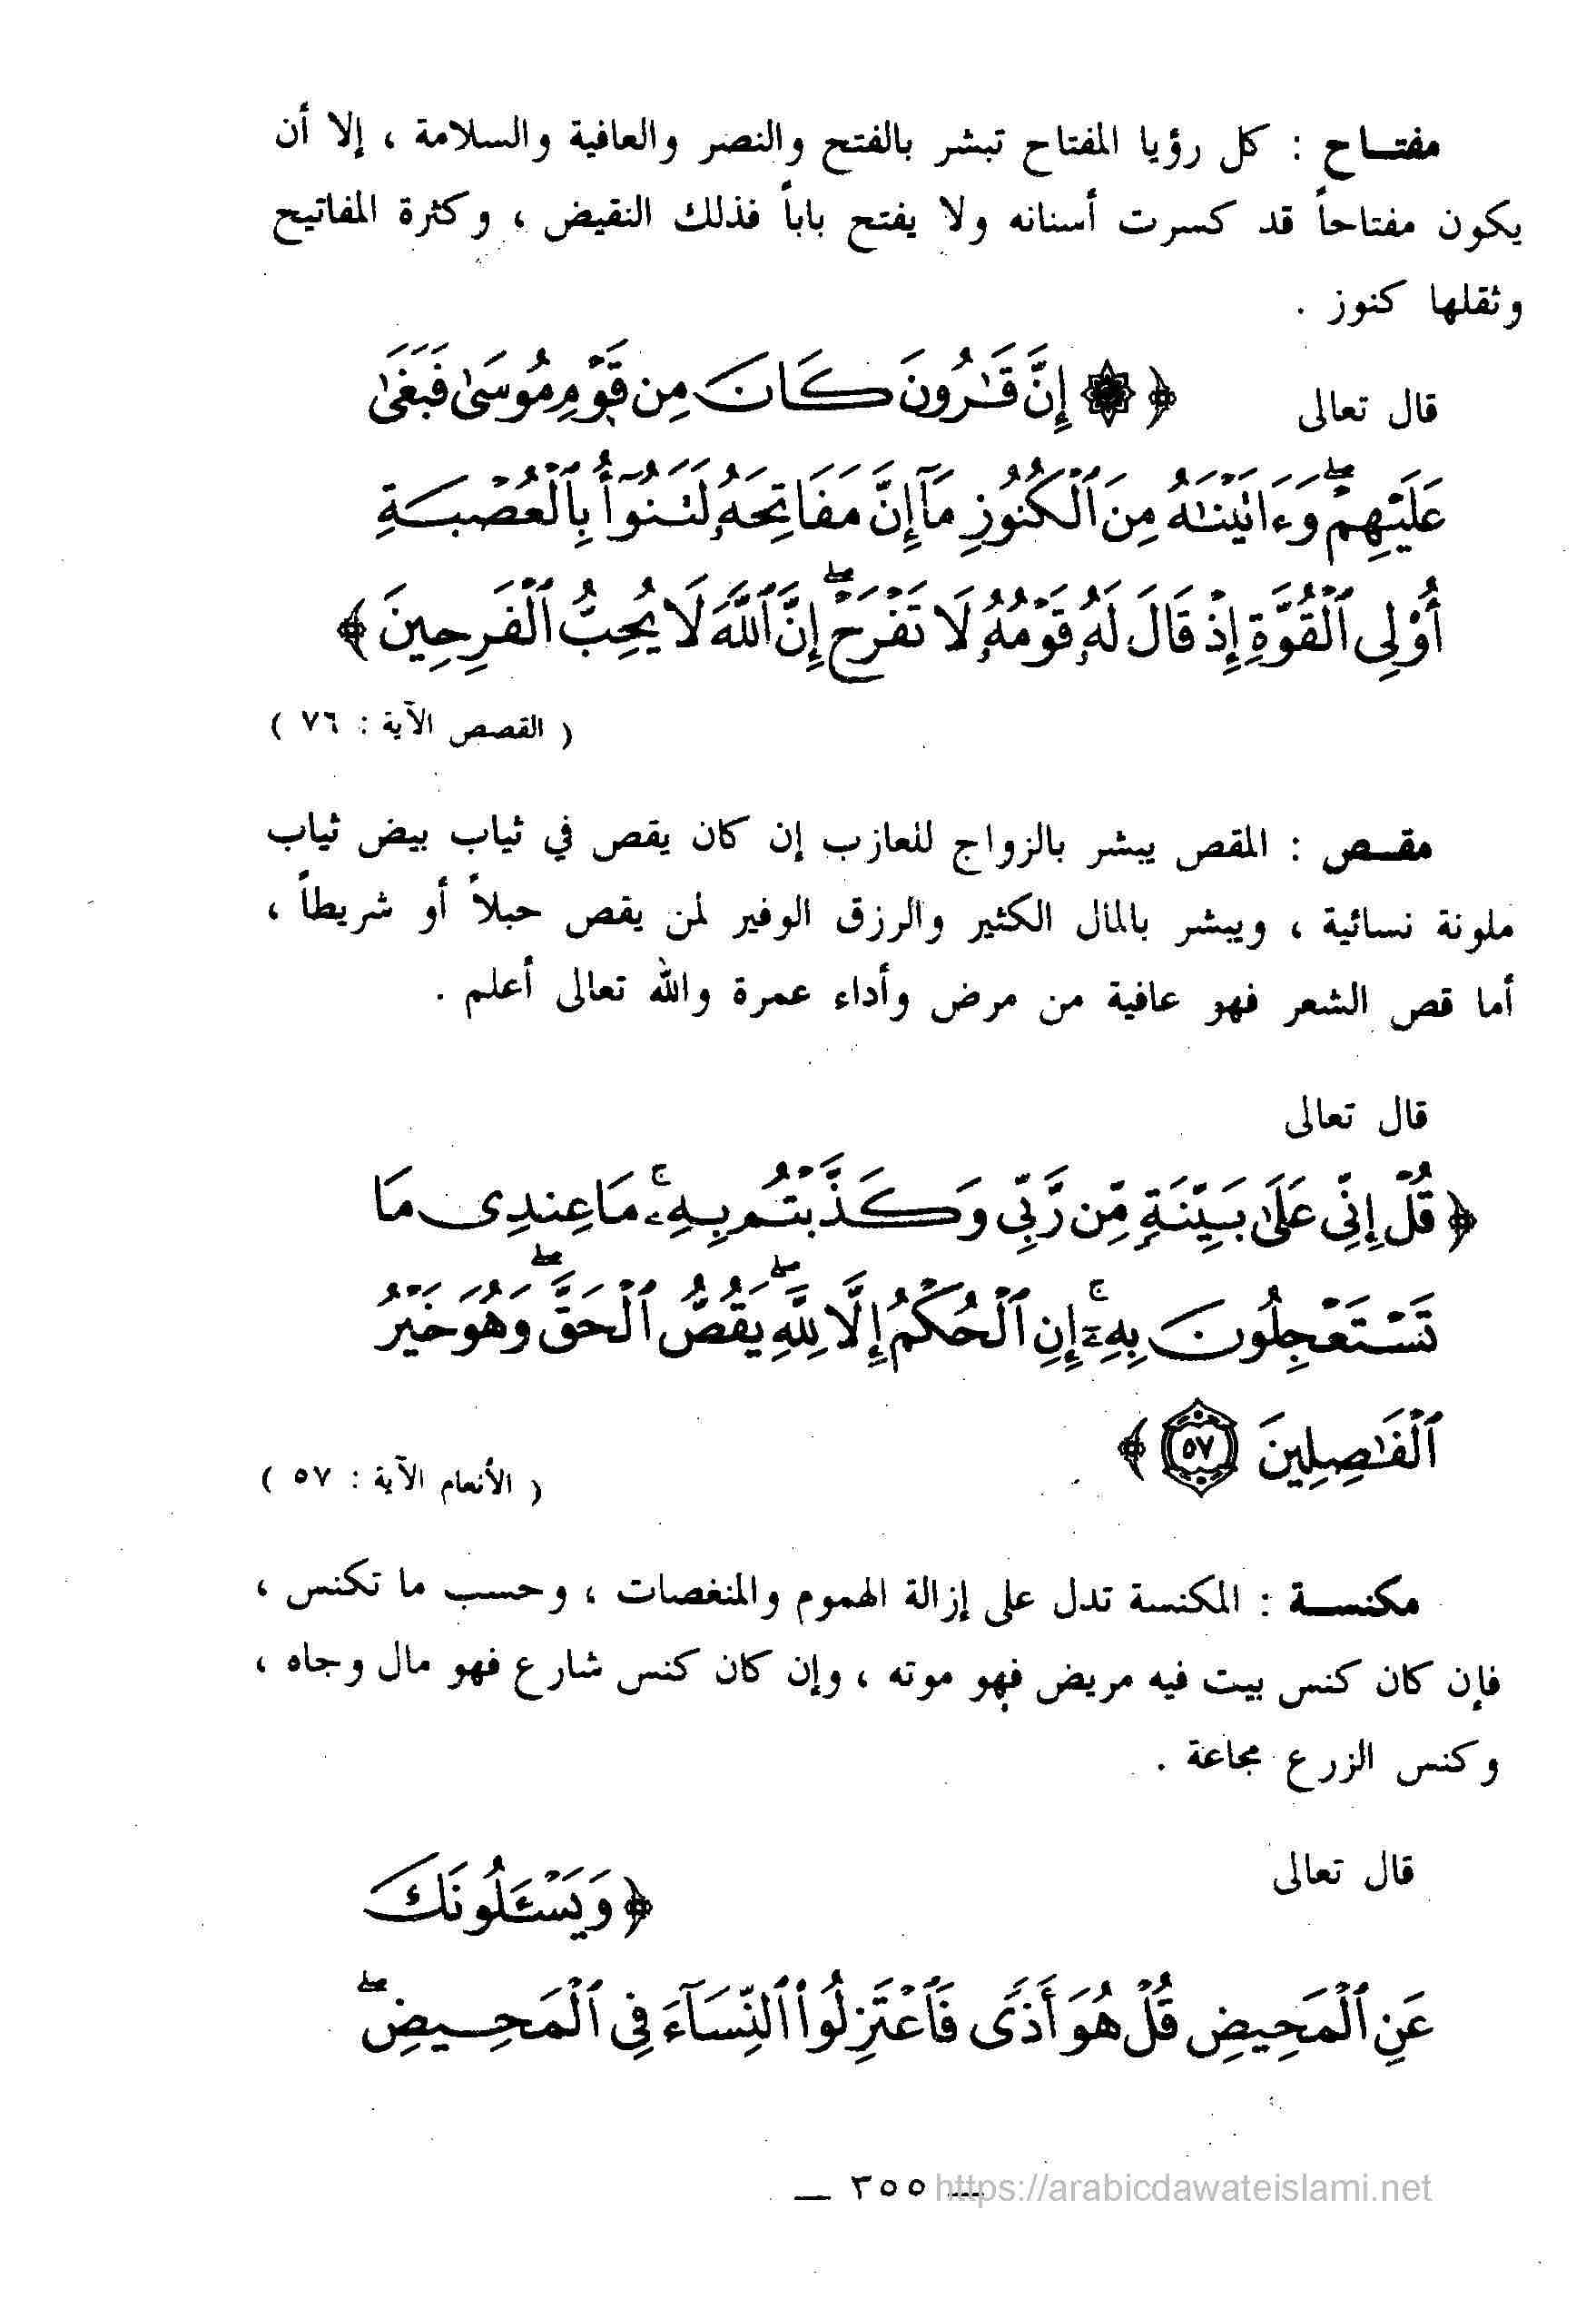 مفتــاح : كل رؤيا المفتاح تبشر بالفتح والنصر والعافية والسلامة ، إلا أن
يكون مفتاحاً قد كسرت أسنانه ولا يفتح باباً فذلك النقيض ، وكثرة المفاتيح
وثقلها كنوز .
قال تعالى ﴿ ۞ إِنَّ قَٰرُونَ كَانَ مِن قَوْمِ مُوسَىٰ فَبَغَىٰ
عَلَيْهِمْ ۖ وَءَاتَيْنَٰهُ مِنَ ٱلْكُنُوزِ مَآ إِنَّ مَفَاتِحَهُۥ لَتَنُوٓأُ بِٱلْعُصْبَةِ
أُو۟لِى ٱلْقُوَّةِ إِذْ قَالَ لَهُۥ قَوْمُهُۥ لَا تَفْرَحْ ۖ إِنَّ ٱللَّهَ لَا يُحِبُّ ٱلْفَرِحِينَ ﴾
( القصص الآية : ٧٦ )
مقــص : المقص يبشر بالزواج للعازب إن كان يقص في ثياب بيض ثياب
ملونة نسائية ، ويبشر بالمال الكثير والرزق الوفير لمن يقص حبلاً أو شريطاً ،
أما قص الشعر فهو عافية من مرض وأداء عمرة والله تعالى أعلم .
قال تعالى
﴿ قُلْ إِنِّى عَلَىٰ بَيِّنَةٍ مِّن رَّبِّى وَكَذَّبْتُم بِهِۦ ۚ مَا عِندِى مَا
تَسْتَعْجِلُونَ بِهِۦٓ ۚ إِنِ ٱلْحُكْمُ إِلَّا لِلَّهِ ۖ يَقُصُّ ٱلْحَقَّ ۖ وَهُوَ خَيْرُ
ٱلْفَٰصِلِينَ ٥٧ ﴾
( الأنعام الآية : ٥٧ )
مكنســة : المكنسة تدل على إزالة الهموم والمنغصات ، وحسب ما تكنس ،
فإن كان كنس بيت فيه مريض فهو موته ، وإن كان كنس شارع فهو مال وجاه ،
وكنس الزرع مجاعة .
قال تعالى ﴿ وَيَسْـَٔلُونَكَ
عَنِ ٱلْمَحِيضِ قُلْ هُوَ أَذًى فَٱعْتَزِلُوا۟ ٱلنِّسَآءَ فِى ٱلْمَحِيضِ ۖ
— ٣٥٥ —
https://arabicdawateislami.net